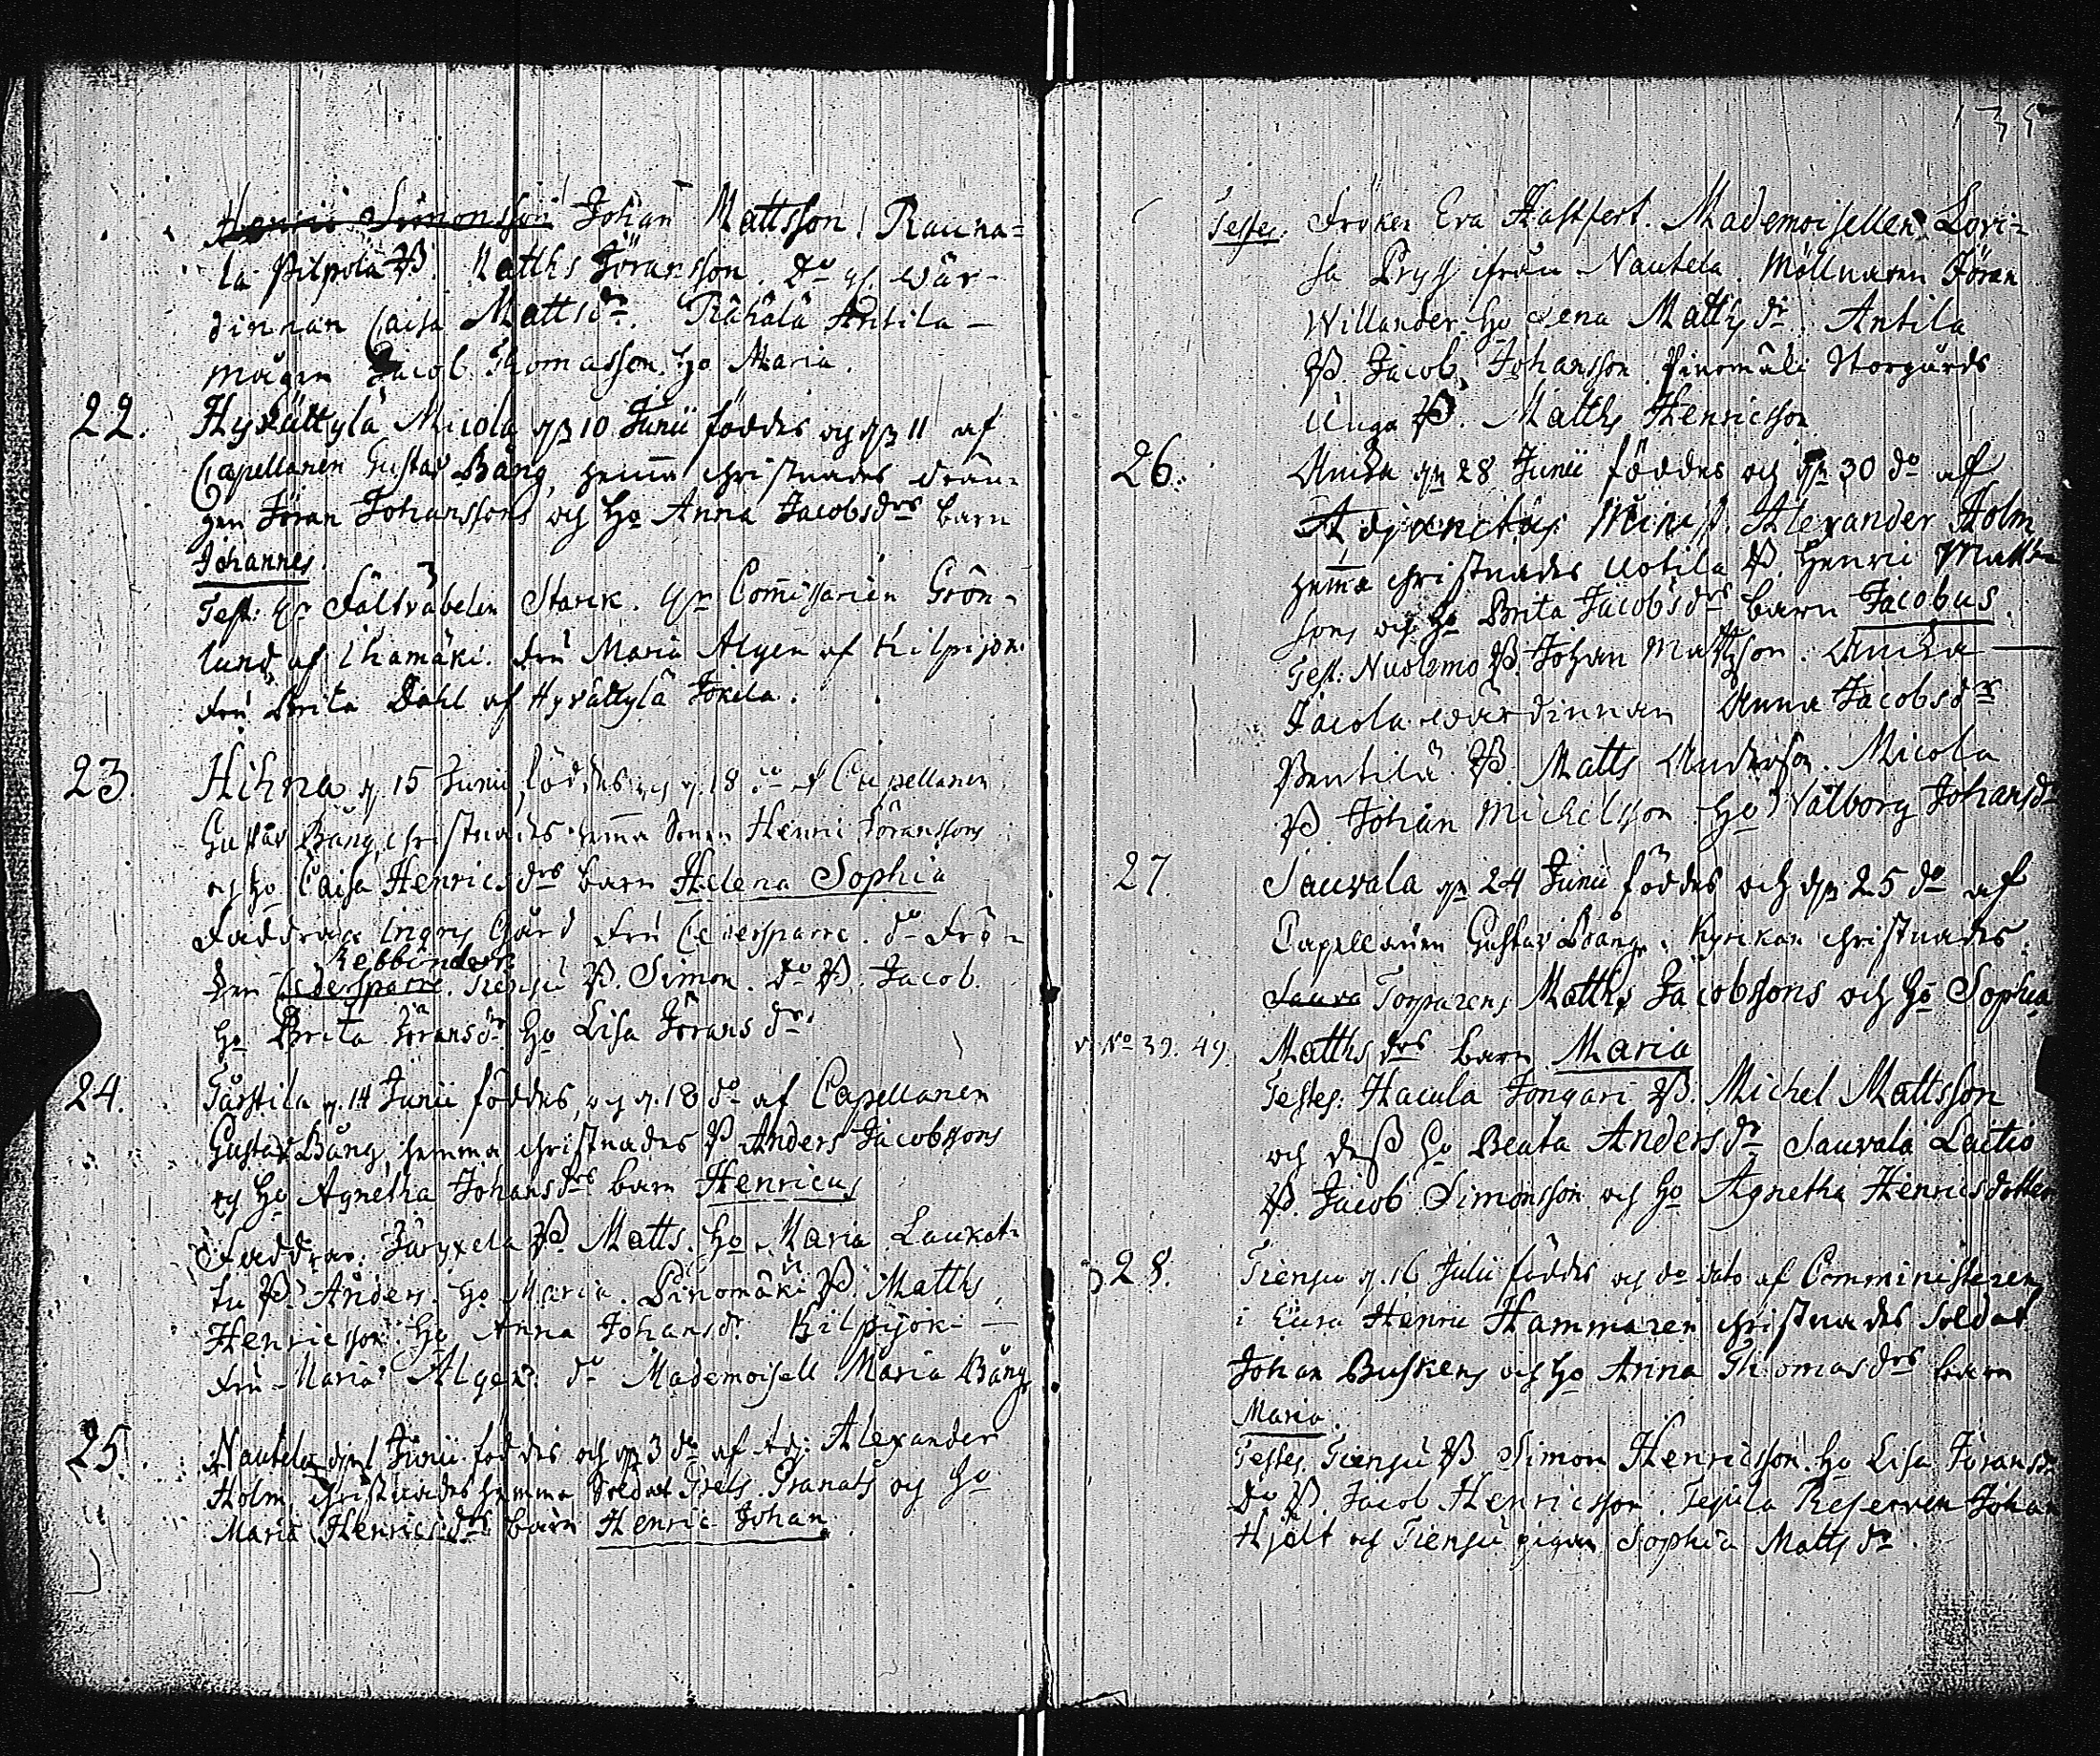 Henric Simonsson Johan Mattsson. Rauna=
la Pilpola B. Matths Jöransson. Do wär-
dinnan Caisa Mattsdr. Antila -
mågen Jacob Thomasson. ho Maria.
22. Hyrättylä Micola 10 Junii föddes och 11 af
Capellanen Gustav Bång, hemma christnades drän-
gen Jöran Johanssons och ho Anna Jacobsdrs barn
Johannes.
Test: Fältväbelen Starck. Commissarien Grön-
lund af Ihamäki. Fru Maria Algen af Kilpijok.
Fru Brita Dahl af Hyrättylä Jokela.
23. Hihna 15 Junii föddes och 18 do af Capellanen
Gustav Bång, christnades hemma Henric Jöranssons
och ho Caisa Henricsdrs barn Helena Sophia
Faddrar Gård Fru Cedersparre. do Frö-
Rebbinder
ken Cedersparre. Tiensu B. Simon. Do B. Jacob.
ho Brita Jöransdr ho Lisa Jöransdr
24. Tårstila 14 Junii föddes, och 18 do af Capellanen
Gustav Bång, hemma christnades B Anders Jacobssons
och ho Agnetha Johansdrs barn Henricus
Faddrar: B. Matts. ho Maria. Laukat-
tu B. Anders. ho Maria. Pinomäki B. Matths
Henricsson. ho Anna Johansdr. Kilpijok -
Fru Maria Algen. do Mademoisell Maria Bång
25. Nautela Junii föddes och 3 do af Adj: Alexander
Holm, christnades hemma Soldat Granats och ho
Maria Henricsdrs barn Henric Johan
135
Testes. Fröken Eva Hastfert. Mademoisellen Lovi-
sa Pryss ifrån Nautela. Möllnaren Jöran
Willander. ho Lena Mattsdr. Antila
B. Jacob Johansson. Pinomäki Storgårds
Unga B. Matths Henricsson
26. 28 Junii föddes och 30 do af
Adjunctus Minist. Alexander Holm
hemma christnades Uotila B. Henric Matths-
sons och ho Brita Jacobsdrs barn Jacobus.
Test: Nuolemo B. Johan Mattsson.
Jacola wärdinnan Anna Jacobsdr
Pentilä B. Matts Andersson. Micola
B. Johan Michelsson ho Walborg Johansdr
27. Sauvala 24 Junii föddes och 25 do af
Capellanen Gustav Bång. Kyrckan christnades.
Sauva Torparens Matths Jacobssons och ho Sophia
v. No 39. 49. Matthsdrs barn Maria
Testes: Hacula Jongari B. Michel Mattsson
och dess ho Beata Andersdr. Sauvala Lactio
B. Jacob Simonsson och ho Agnetha Henricsdotter
28. Tiensu 16 Julii föddes och do dato af Comministeren
i Eura Henric Hammaren christnades Soldat
Johan Buskens och ho Anna Thomasdrs barn
Maria.
Testes Tiensu B Simon Henricsson. ho Lisa Jöransdr
Do B. Jacob Henricsson. Reserven Johan
Hjelt och Tiensu pigan Sophia Mattsdr.